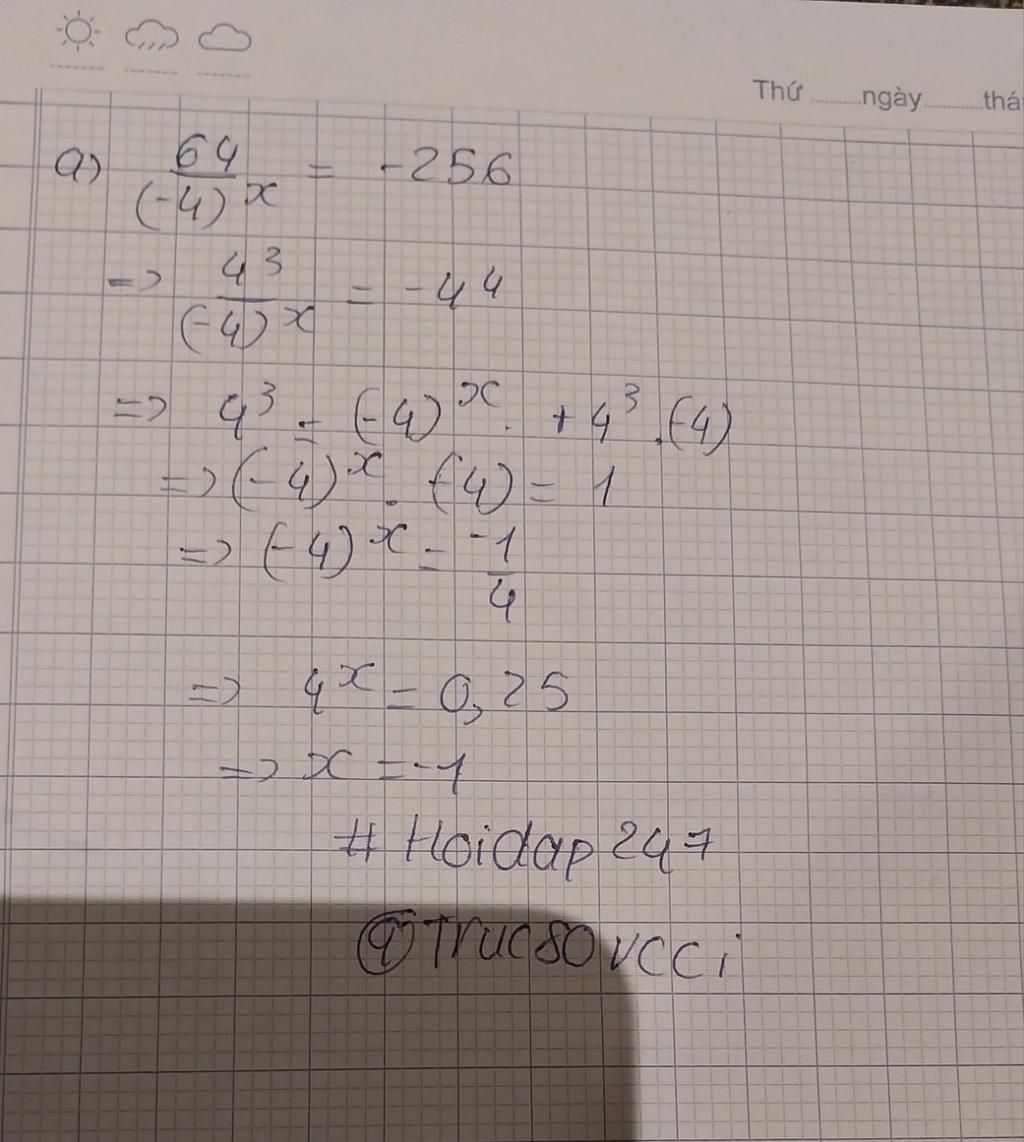 Thứ ........ ngày .......... thá
a) 64/(-4)^x = -256
=> 4^3/(-4)^x = -4^4
=> 4^3 = (-4)^x . + 4^3 . (-4)
=> (-4)^x . (-4) = 1
=> (-4)^x = -1/4
=> 4^x = 0,25
=> x = -1
# Hoidap 247
@Truc80vcci